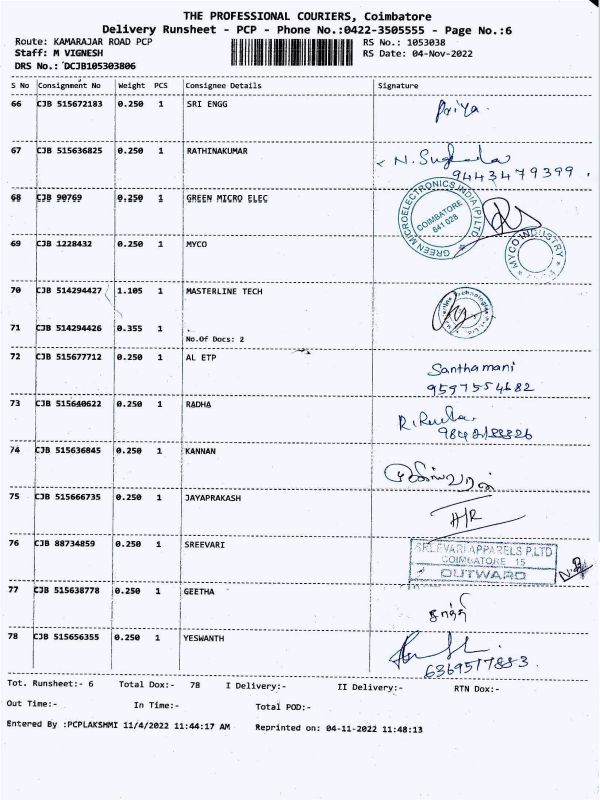 THE PROFESSIONAL COURIERS, Coimbatore
Delivery Runsheet - PCP - Phone No.:0422-3505555 - Page No.:6
Route: KAMARAJAR ROAD PCP
RS No.: 1053038
Staff: M VIGNESH
RS Date: 04-Nov-2022
DRS No.: DCJB105303806
S No Consignment No Weight PCS Consignee Details Signature
66 CJB 515672183 0.250 1 SRI ENGG Priya.
67 CJB 515636825 0.250 1 RATHINAKUMAR N.
9443479399.
68 CJB 90769 0.250 1 GREEN MICRO ELEC
GREEN MICROELECTRONICS INDIA (P) LTD
COIMBATORE
641 028
69 CJB 1228432 0.250 1 MYCO
MYCO INDUSTRY
70 CJB 514294427 1.105 1 MASTERLINE TECH
71 CJB 514294426 0.355 1
No.Of Docs: 2
72 CJB 515677712 0.250 1 AL ETP Santhamani
9597554682
73 CJB 515640622 0.250 1 RADHA
74 CJB 515636845 0.250 1 KANNAN
75 CJB 515666735 0.250 1 JAYAPRAKASH
H/R
76 CJB 88734859 0.250 1 SREEVARI
APPARELS P.LTD
COIMBATORE 15
OUTWARD
77 CJB 515638778 0.250 1 GEETHA
78 CJB 515656355 0.250 1 YESWANTH
Tot. Runsheet:- 6 Total Dox:- 78 I Delivery:- II Delivery:- RTN Dox:-
Out Time:- In Time:- Total POD:-
Entered By :PCPLAKSHMI 11/4/2022 11:44:17 AM Reprinted on: 04-11-2022 11:48:13